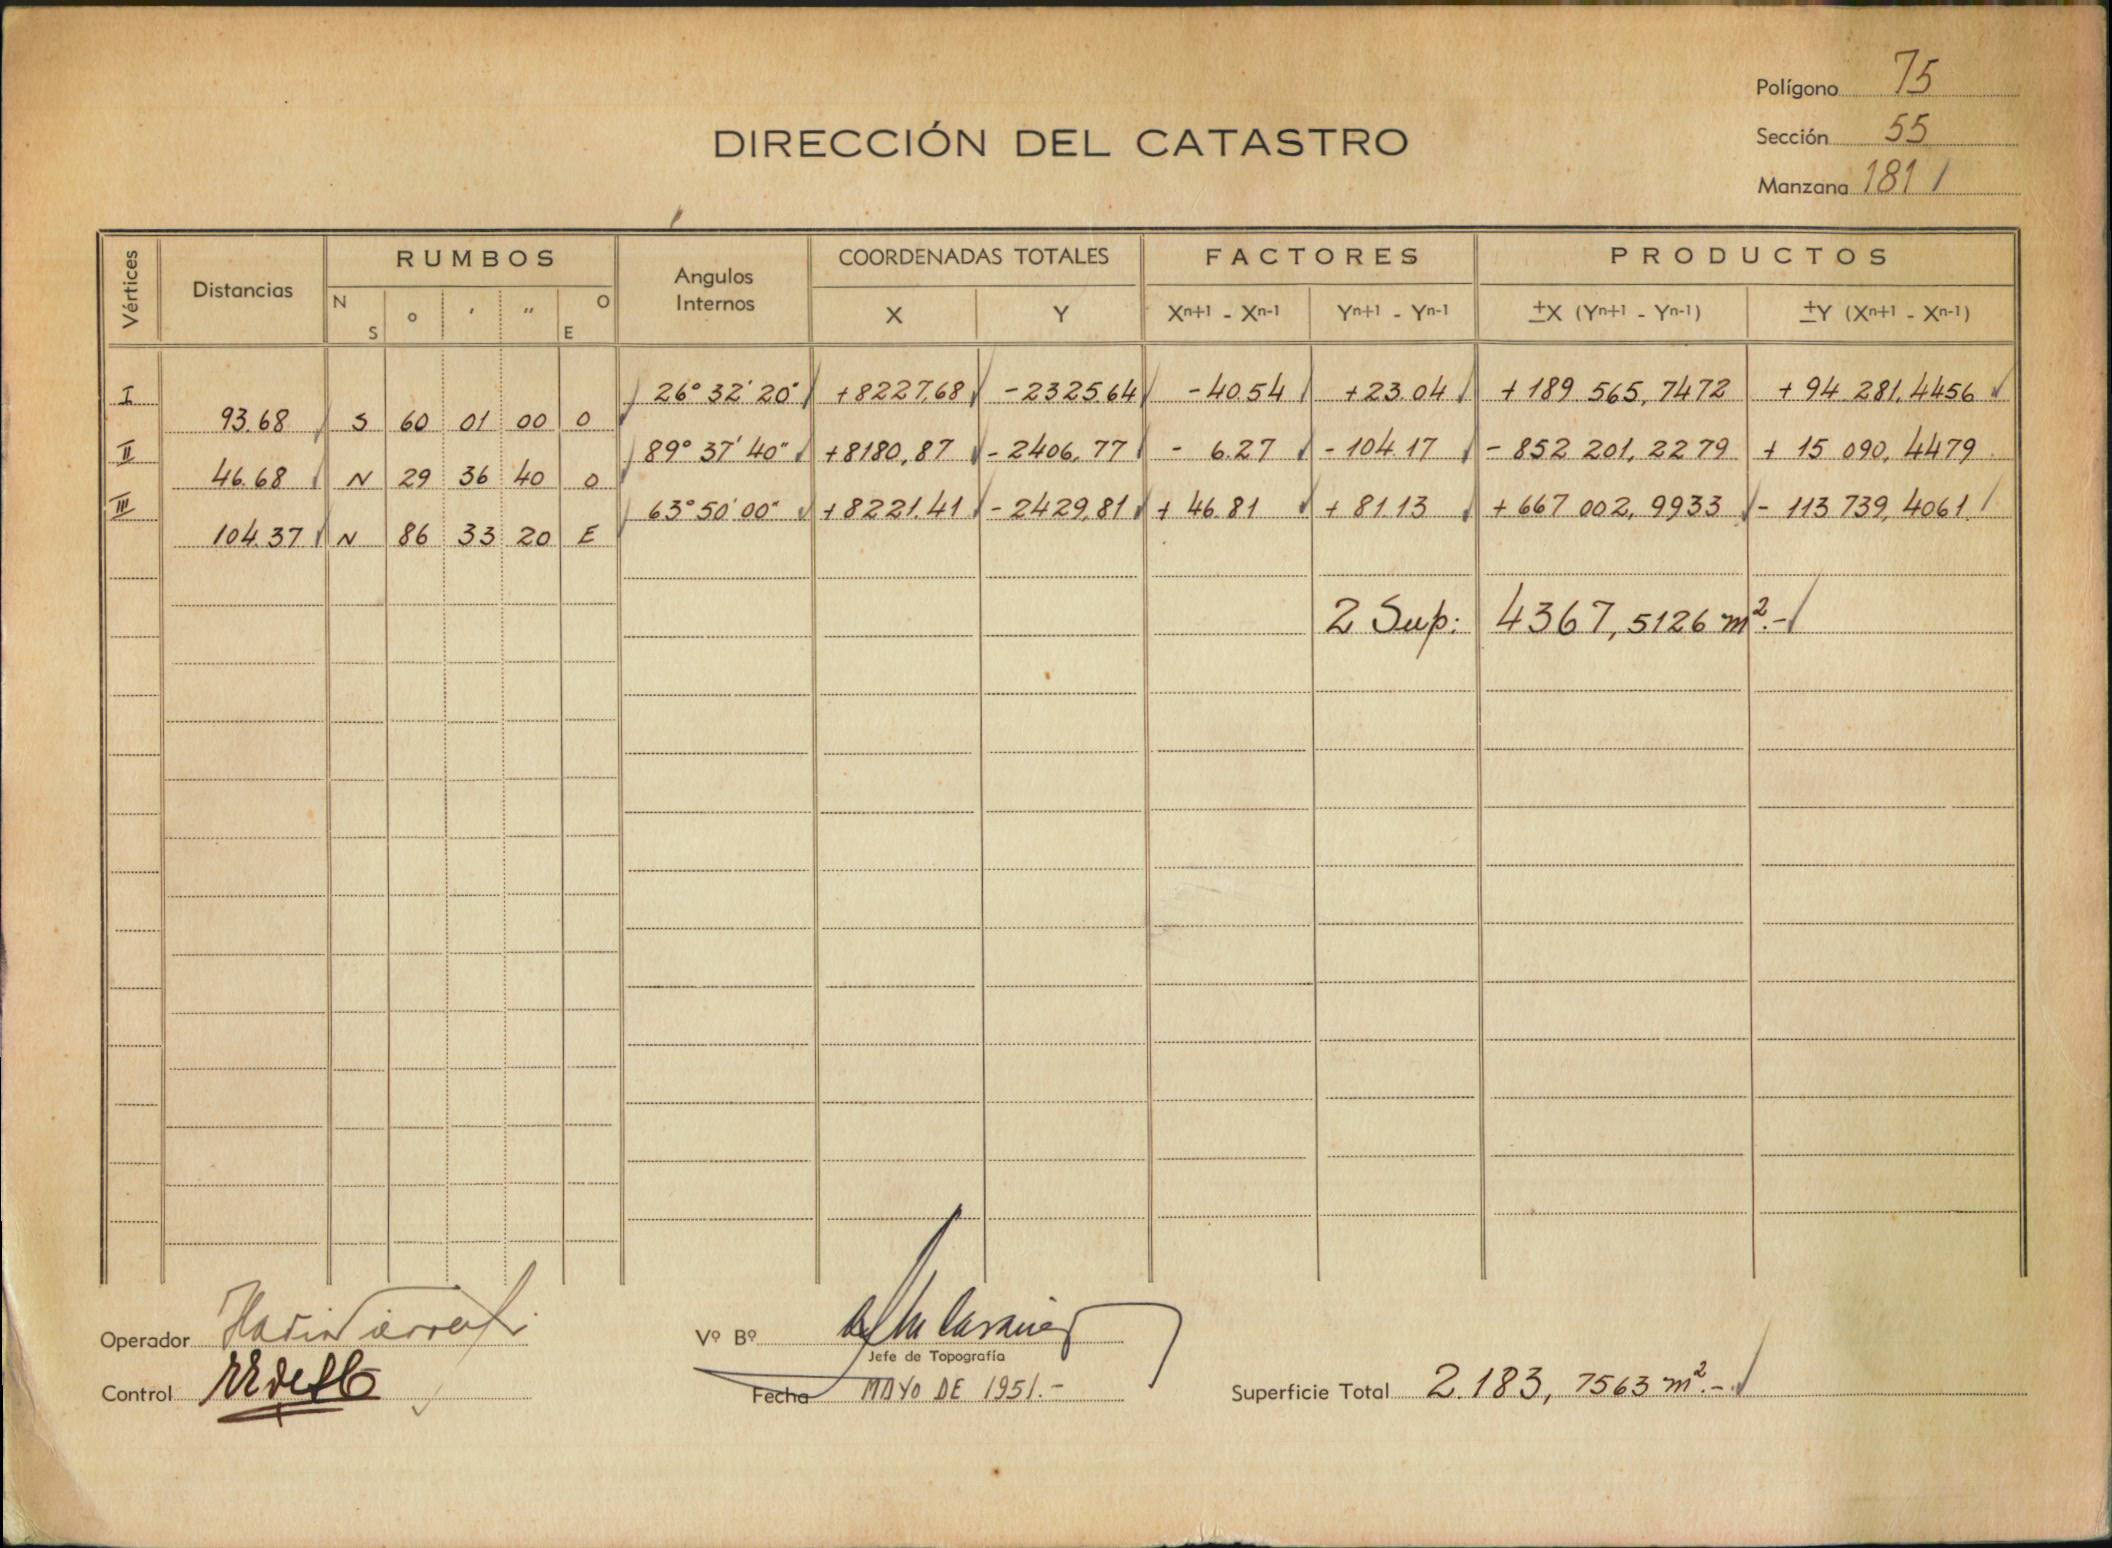 Polígono 75
DIRECCIÓN DEL CATASTRO
Sección 55
Manzana 181
Vértices Distancias RUMBOS Angulos Internos COORDENADAS TOTALES FACTORES PRODUCTOS
N S ° ' " O E X Y Xn+1 - Xn-1 Yn+1 - Yn-1 ±X (Yn+1 - Yn-1) ±Y (Xn+1 - Xn-1)
I 26° 32' 20" +8227,68 -2325.64 -40.54 +23.04 +189 565,7472 +94 281,4456
93.68 S 60 01 00 O
II 89° 37' 40" +8180,87 -2406,77 - 6.27 -104.17 -852 201,2279 + 15 090,4479
46.68 N 29 36 40 O
III 63° 50' 00" +8221.41 -2429,81 + 46.81 + 81.13 +667 002,9933 - 113 739,4061
104.37 N 86 33 20 E
2 Sup: 4367,5126 m².-
Operador
Vº Bº
Jefe de Topografía
Control
Fecha MAYO DE 1951.-
Superficie Total 2.183, 7563 m².-